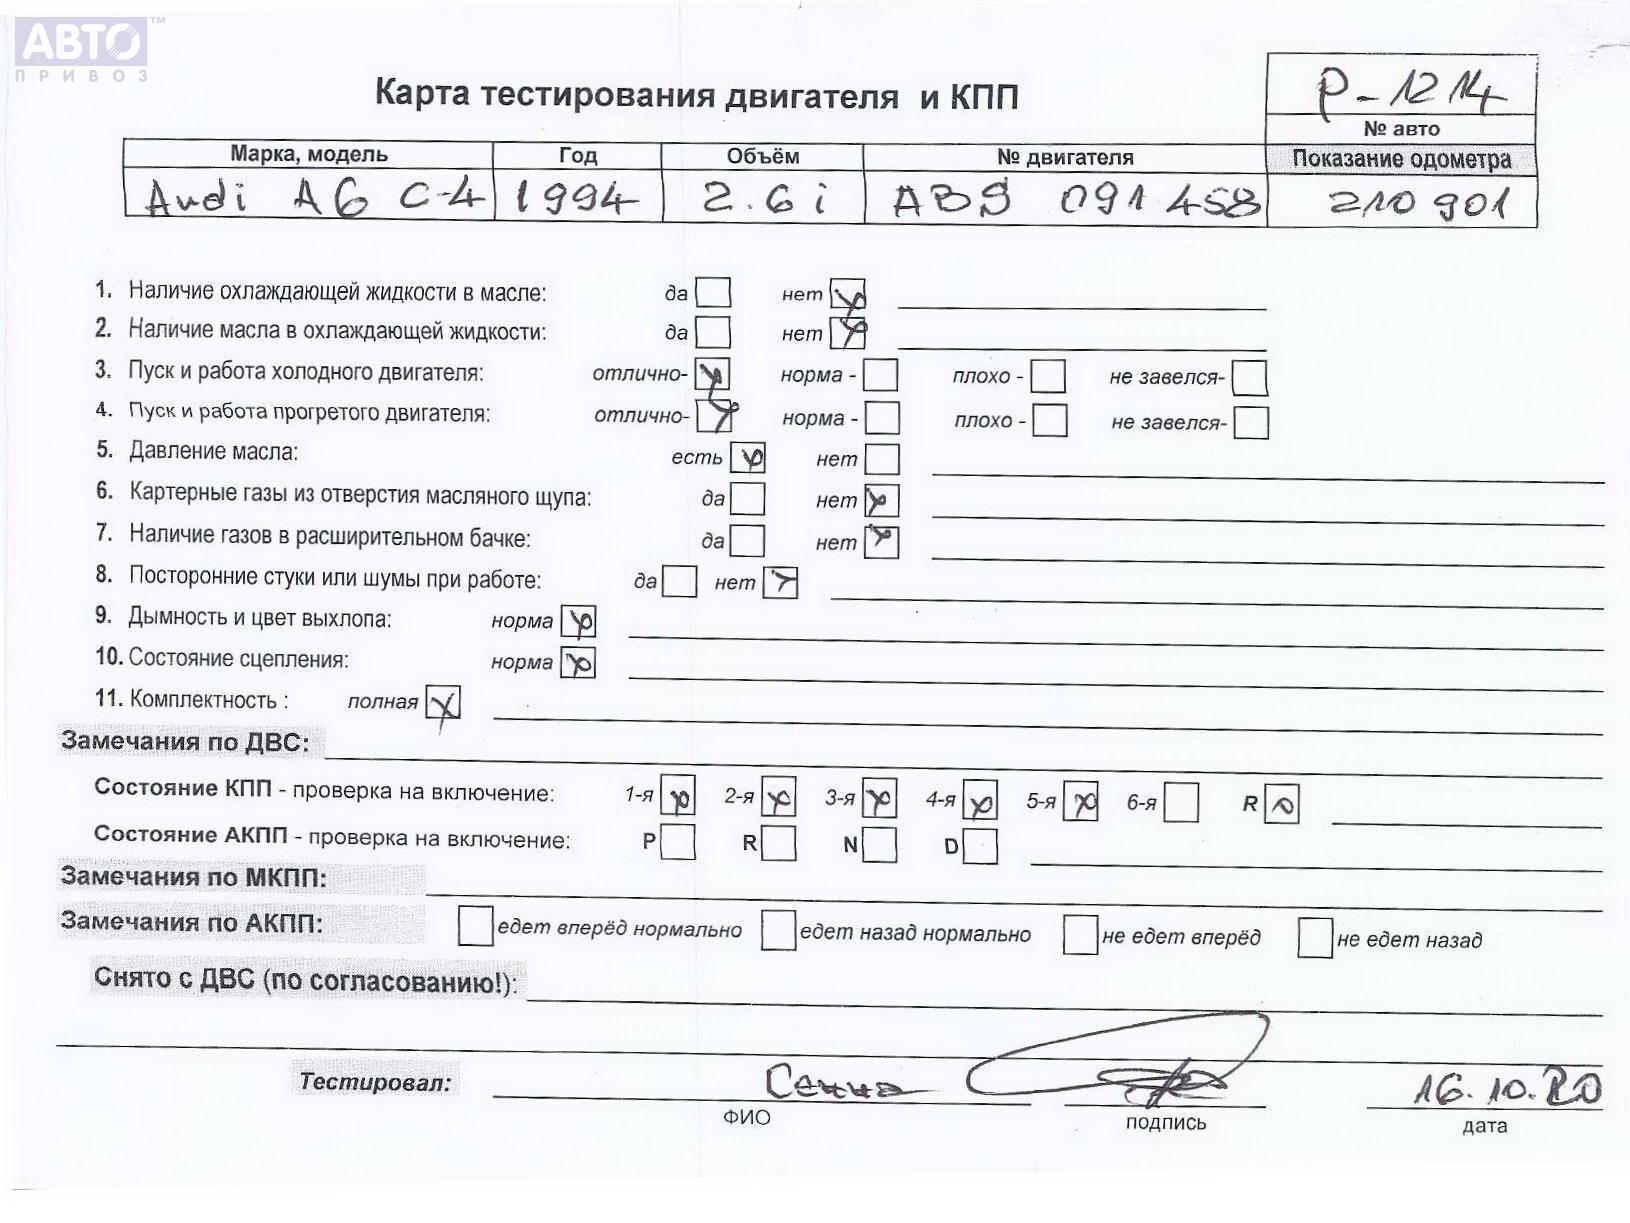 АВТО™
ПРИВОЗ
Карта тестирования двигателя и КПП
P-1214
№ авто
Марка, модель Год Объём № двигателя Показание одометра
Audi A6 C-4 1994 2.6i ABS 091458 210901
1. Наличие охлаждающей жидкости в масле: да нет
2. Наличие масла в охлаждающей жидкости: да нет
3. Пуск и работа холодного двигателя: отлично- норма - плохо - не завелся-
4. Пуск и работа прогретого двигателя: отлично- норма - плохо - не завелся-
5. Давление масла: есть нет
6. Картерные газы из отверстия масляного щупа: да нет
7. Наличие газов в расширительном бачке: да нет
8. Посторонние стуки или шумы при работе: да нет
9. Дымность и цвет выхлопа: норма
10. Состояние сцепления: норма
11. Комплектность : полная
Замечания по ДВС:
Состояние КПП - проверка на включение: 1-я 2-я 3-я 4-я 5-я 6-я R
Состояние АКПП - проверка на включение: P R N D
Замечания по МКПП:
Замечания по АКПП: едет вперёд нормально едет назад нормально не едет вперёд не едет назад
Снято с ДВС (по согласованию!):
Тестировал: 16.10.20
ФИО подпись дата